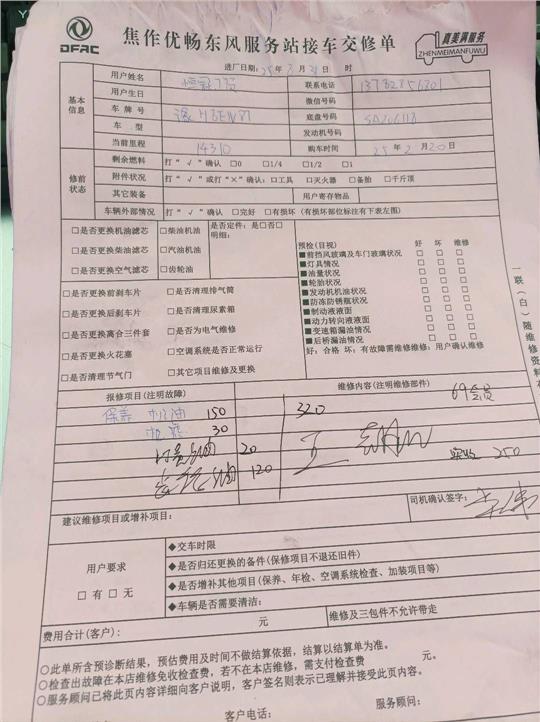 DFAC
焦作优畅东风服务站接车交修单
真美满服务
ZHENMEIMANFUWU
进厂日期: 25年 月 日 时
基本信息
用户姓名 联系电话
用户生日 微信号码
车牌号 底盘号码
车型 发动机号码
当前里程 14310 购车时间 25年2月20日
修前状态
剩余燃料 打“√”确认 □0 □1/4 □1/2 □1
附件状况 打“√”或打“×”确认:□工具 □灭火器 □备胎 □千斤顶
其它装备 用户寄存物品
车辆外部情况 打“√”确认 □完好 □有损坏(有损坏部位标注有下表左图)
□是否更换机油滤芯 □柴油机油 是否定件:是□否□
明细:
□是否更换柴油滤芯 □汽油机油
□是否更换空气滤芯 □齿轮油
□是否更换前刹车片 □是否清理排气筒
□是否更换后刹车片 □是否清理尿素箱
□是否更换离合三件套 □是否为电气维修
□是否更换火花塞 □空调系统是否正常运行
□是否清理节气门 □其它项目维修及更换
预检(目视) 好 坏 维修
■前挡风玻璃及车门玻璃状况 □ □ □
■灯具情况 □ □ □
■油量状况 □ □ □
■轮胎状况 □ □ □
■发动机机油状况 □ □ □
■防冻防锈瓶状况 □ □ □
■制动液液面 □ □ □
■动力转向液液面 □ □ □
■变速箱漏油情况 □ □ □
■后桥漏油情况 □ □ □
好:合格 坏:有故障需维修维修:用户确认维修
一联(白)随维修资料
报修项目(注明故障) 维修内容(注明维修部件) 69会员
保养 机油 150 320
机滤 30
20
120
实收 250
司机确认签字:
建议维修项目或增补项目:
用户要求
□有 □无
◆交车时限
◆是否归还更换的备件(保修项目不退还旧件)
◆是否增补其他项目(保养、年检、空调系统检查、加装项目等)
◆车辆是否需要清洁:
费用合计(客户): 元 维修及三包件不允许带走
○此单所含预诊断结果,预估费用及时间不做结算依据,结算以结算单为准。
○检查出故障在本店维修免收检查费,若不在本店维修,需支付检查费 元。
○服务顾问已将此页内容详细向客户说明,客户签名则表示已理解并接受此页内容。
客户电话: 服务顾问: